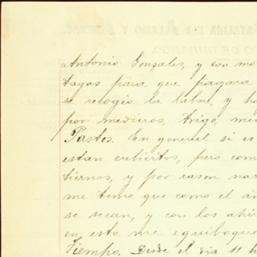 Antonio Gonzales, y con mo
tagas para que pagara
se recogio la labor, y h
por medieros, trigo, me
Pastos. En general si es
estan cubiertos, pero com
tiernos, y por rason na
me temo que como el a
se secan, y con los abi
en, esto me equiboque
Tiempo, Desde el dia 11 h